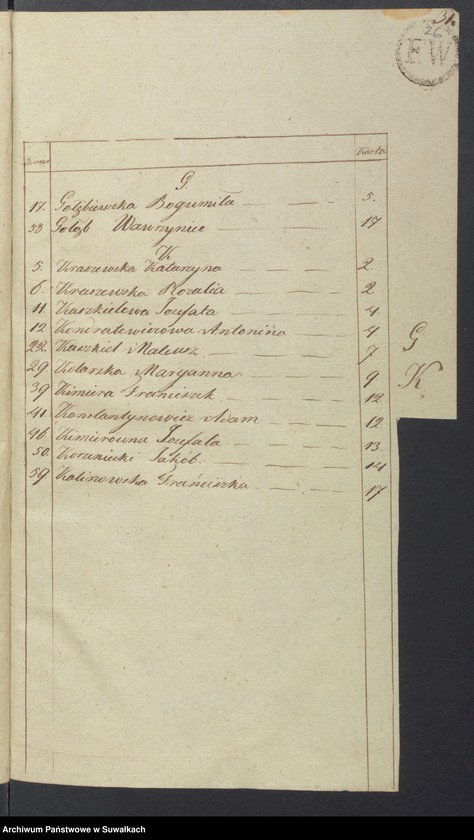 31.
26
EW
Numer Karta
G.
17. Gołębiewska Bogumiła 5.
58 Gołąb Wawrzyniec 17
K
5. Kraszewska Katarzyna 2.
6. Kraszewska Rozalia 2
11. Kaszkielowa Jozefata 4
12. Kondratowiczowa Antonina 4
22. Kaszkiel Mateusz 7
29 Kotarska Maryanna 9
39 Kimiera Franciszek 12
41. Konstantynowicz Adam 12
46. Kimierowna Jozefata 13.
50. Korzeniecki Jakób. 14
59 Kalinowska Franciszka 17
G
K.
Archiwum Państwowe w Suwałkach